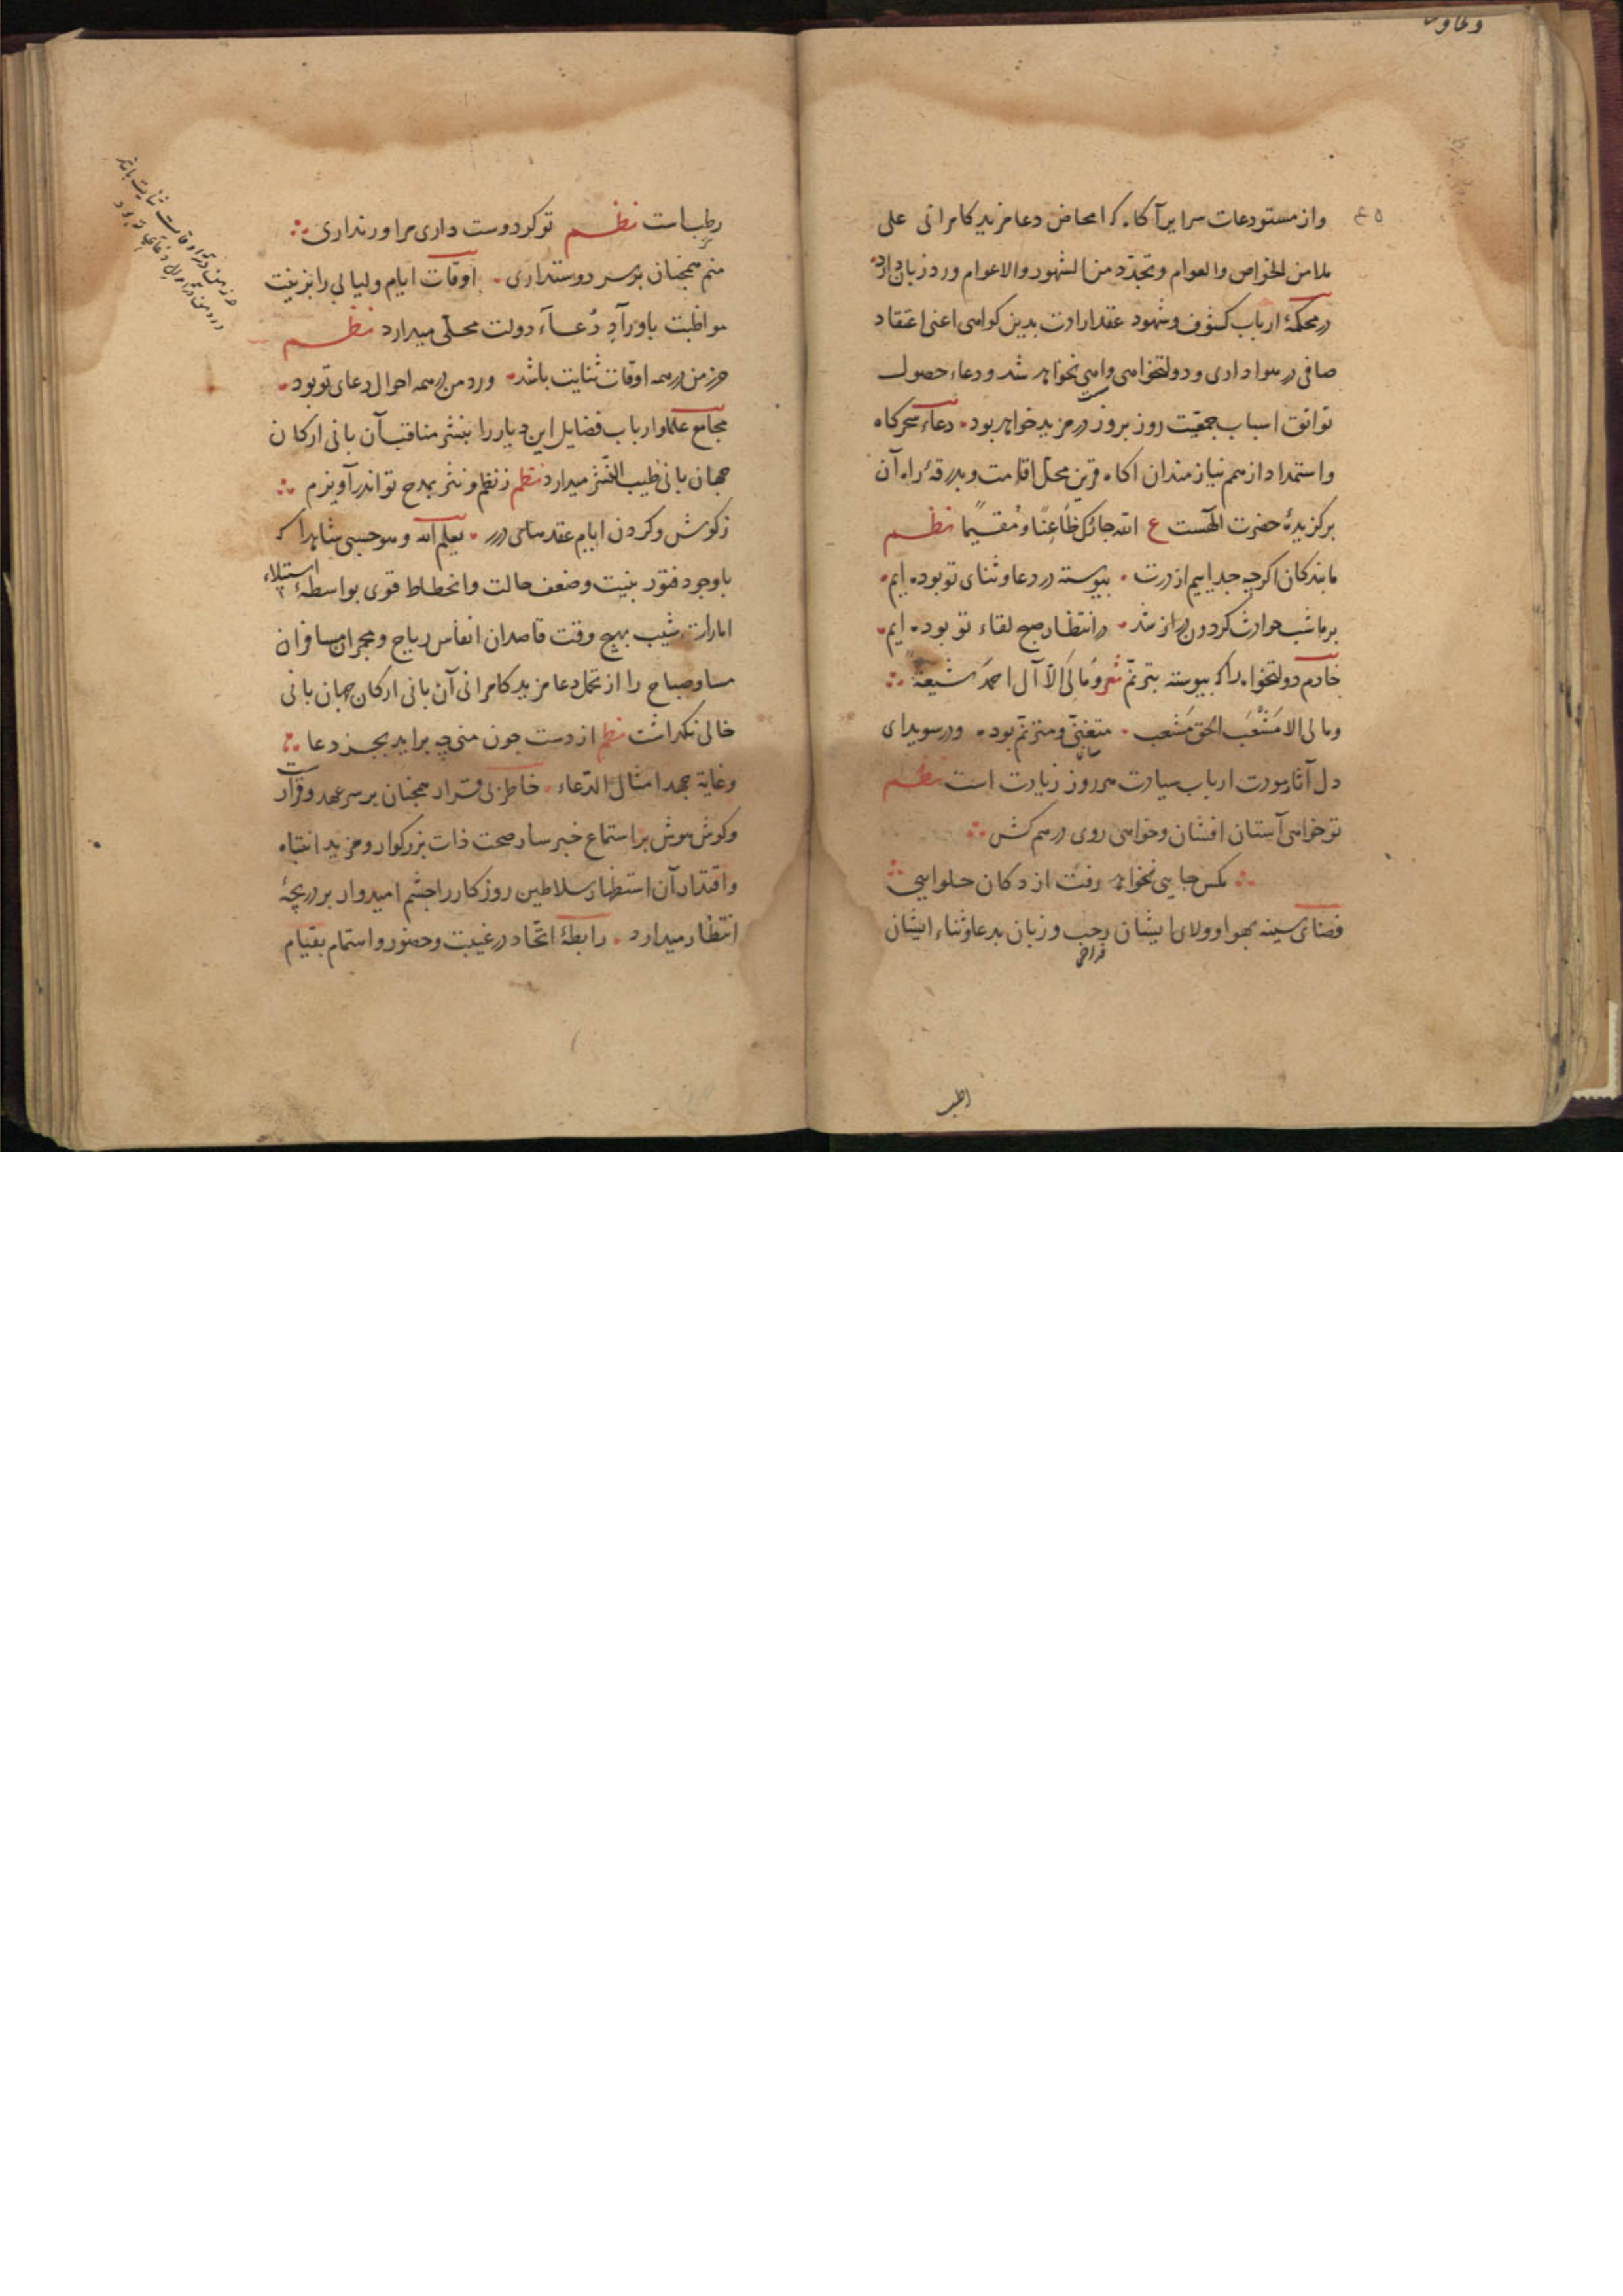 واز مستودعات سرایر آکاه که امحاض دعا مزید کامرانی علی
ملا من الخواص والعوام وتجدّد من الشهور والاعوام ورد زبان دارد
در محکمهٔ ارباب کشوف وشهود عقد ارادت بدین کواهی اعنی اعتقاد
صافی در هواداری ودولتخواهی واهی نخواهد شد ودعاء حصول
توافق اسباب جمعیّت روز بروز در مزید خواهد بود دعاء سحرکاه
واستمداد از همم نیازمندان آکاه قرین محل اقامت وبدرقهٔ راه آن
برکزیدهٔ حضرت الهست ع الله جارک ظاعنًا ومُقیمًا نظم
ما بندکان اکرچه جداییم از درت پیوسته در دعا وثنای تو بوده ایم
بر ما شب حوادث کردون دراز شد در انتظار صبح لقاء تو بوده ایم
خادم دولتخواه را که پیوسته بترنّم شعر ومالی الّا آل احمد شیعة
ومالی الا مَشْعَبَ الحق مَشعب متغنّی ومترنّم بوده ودر سویدای
دل آثار مودت ارباب سیادت هر روز زیادت است نظم
تو خواهی آستان افشان وخواهی روی در هم کش
مکس جایی نخواهد رفت از دکان حلوایی
فضای سینه بهوا وولای ایشان رحب وزبان بدعا وثناء ایشان
فراخی
رطب است نظم تو کر دوست داری مرا ور نداری
منم همچنان بر سر دوستداری اوقات ایام ولیالی را بزینت
مواظبت باوراد دُعاء دولت محلّی میدارد نظم
حرز من در همه اوقات ثنایت باشد ورد من در همه احوال دعای تو بود
مجامع علما وارباب فضایل این دیار را بنشر مناقب آن بانی ارکان
جهان بانی طیب النشر میدارد نظم ز نظم و نثر بمدح تو اندر آویزم
ز کوش وکردن ایام عقدهای درر یعلم الله وهو حسبی شاهدا که
با وجود فتور بنیت وضعف حالت وانحطاط قوی بواسطهٔ استیلاء
امارات شیب بهیچ وقت قاصدان انفاس ریاح ومجمران مسافران
مسا وصباح را از تحمل دعا مزید کامرانی آن بانی ارکان جهان بانی
خالی نکذاشت نظم از دست چون منی چه براید بجز دعا
وغایة جهد امثالی الدّعاء خاطر بی قرار همچنان بر سر عهد وقرارست
وکوش هوش بر استماع خبر سار صحت ذات بزرکوار ومزید انتباه
واقتدار آن استظهار سلاطین روزکار را چشم امیدوار بر دریچهٔ
انتظار میدارد رابطهٔ اتّحاد در غیبت وحضور واستمام بقیام